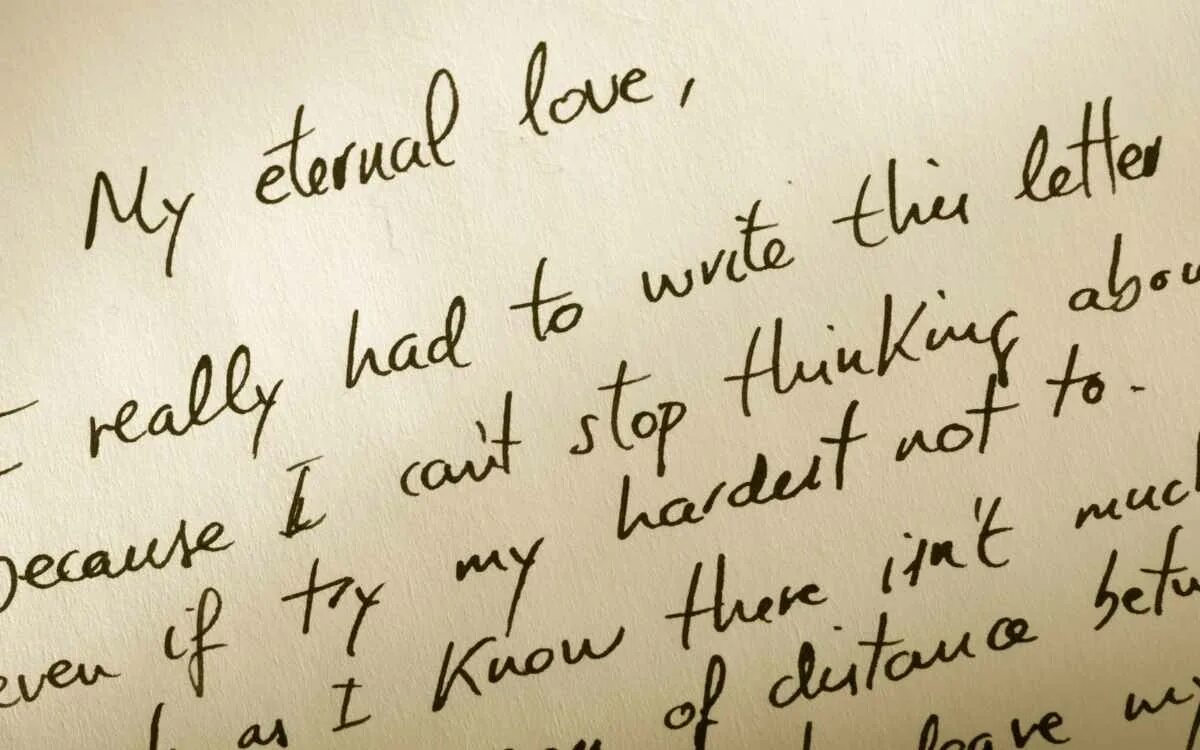 My eternal love,
I really had to write this letter
because I can't stop thinking abou
even if try my hardest not to.
as I know there isn't much
of distance betw
leave my